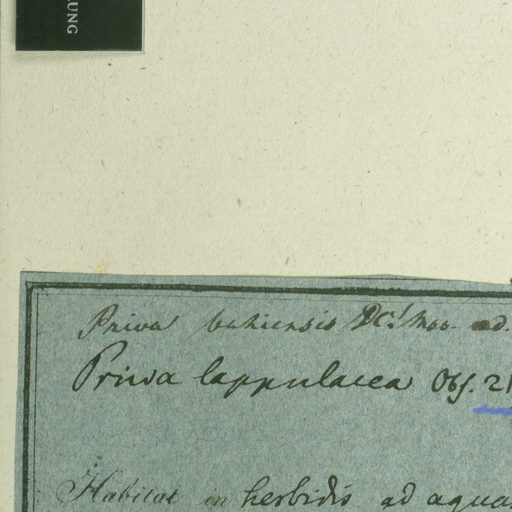 UNG
Priva bahiensis DC! Mss. ad.
Priva lappulacea Obs. 21
Habitat in herbidis ad aquas